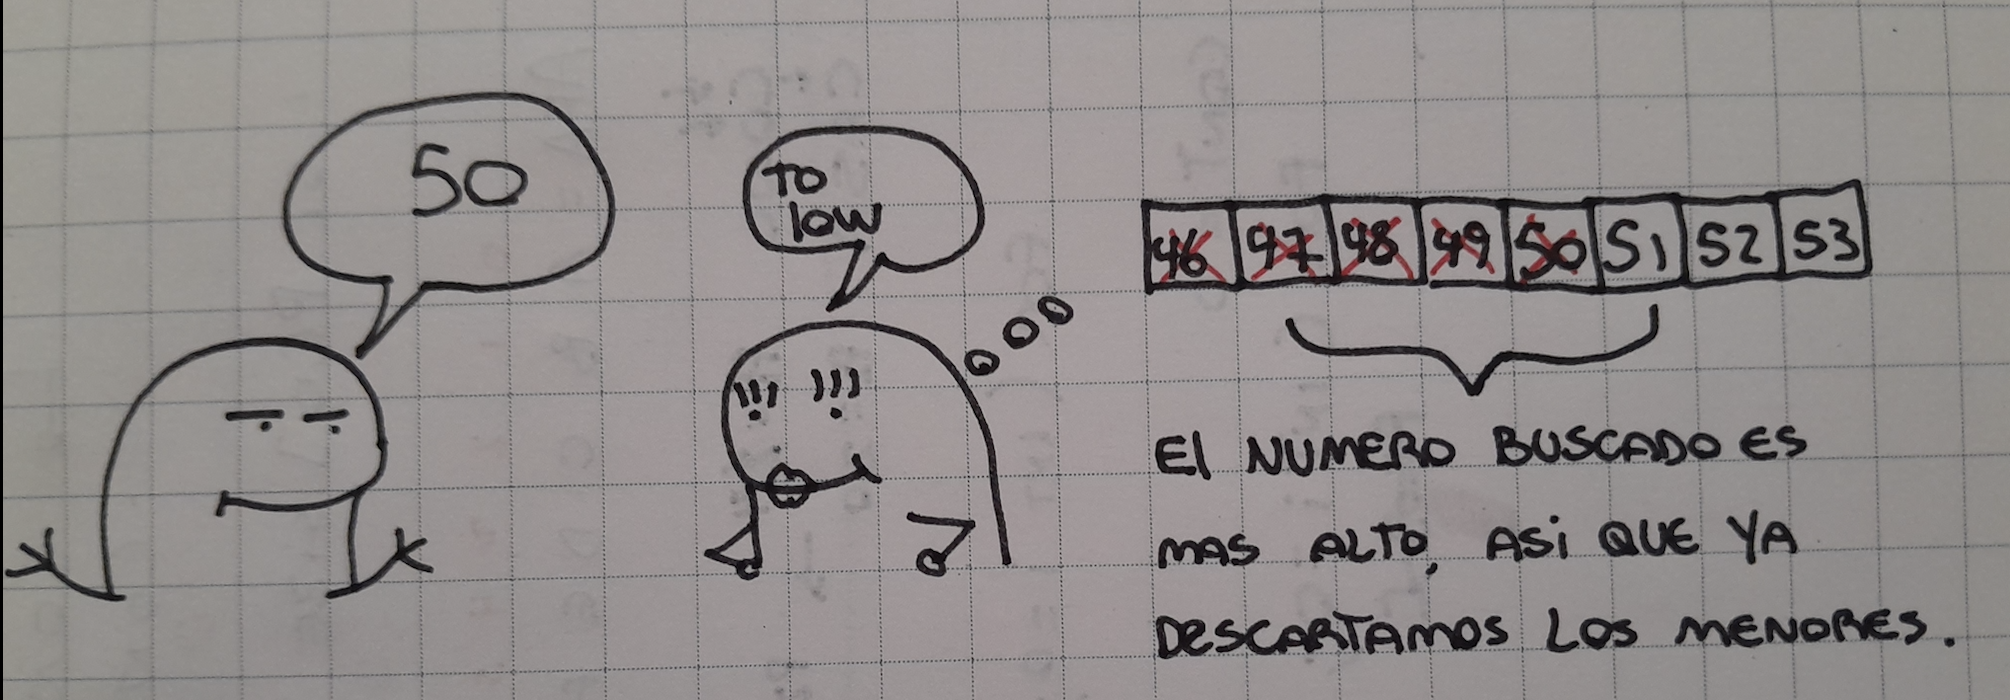 50
TO
low
46 47 48 49 50 51 52 53
El NUMERO BUSCADO ES
MAS ALTO, ASi QUE YA
DESCARTAMOS LOS MENORES.